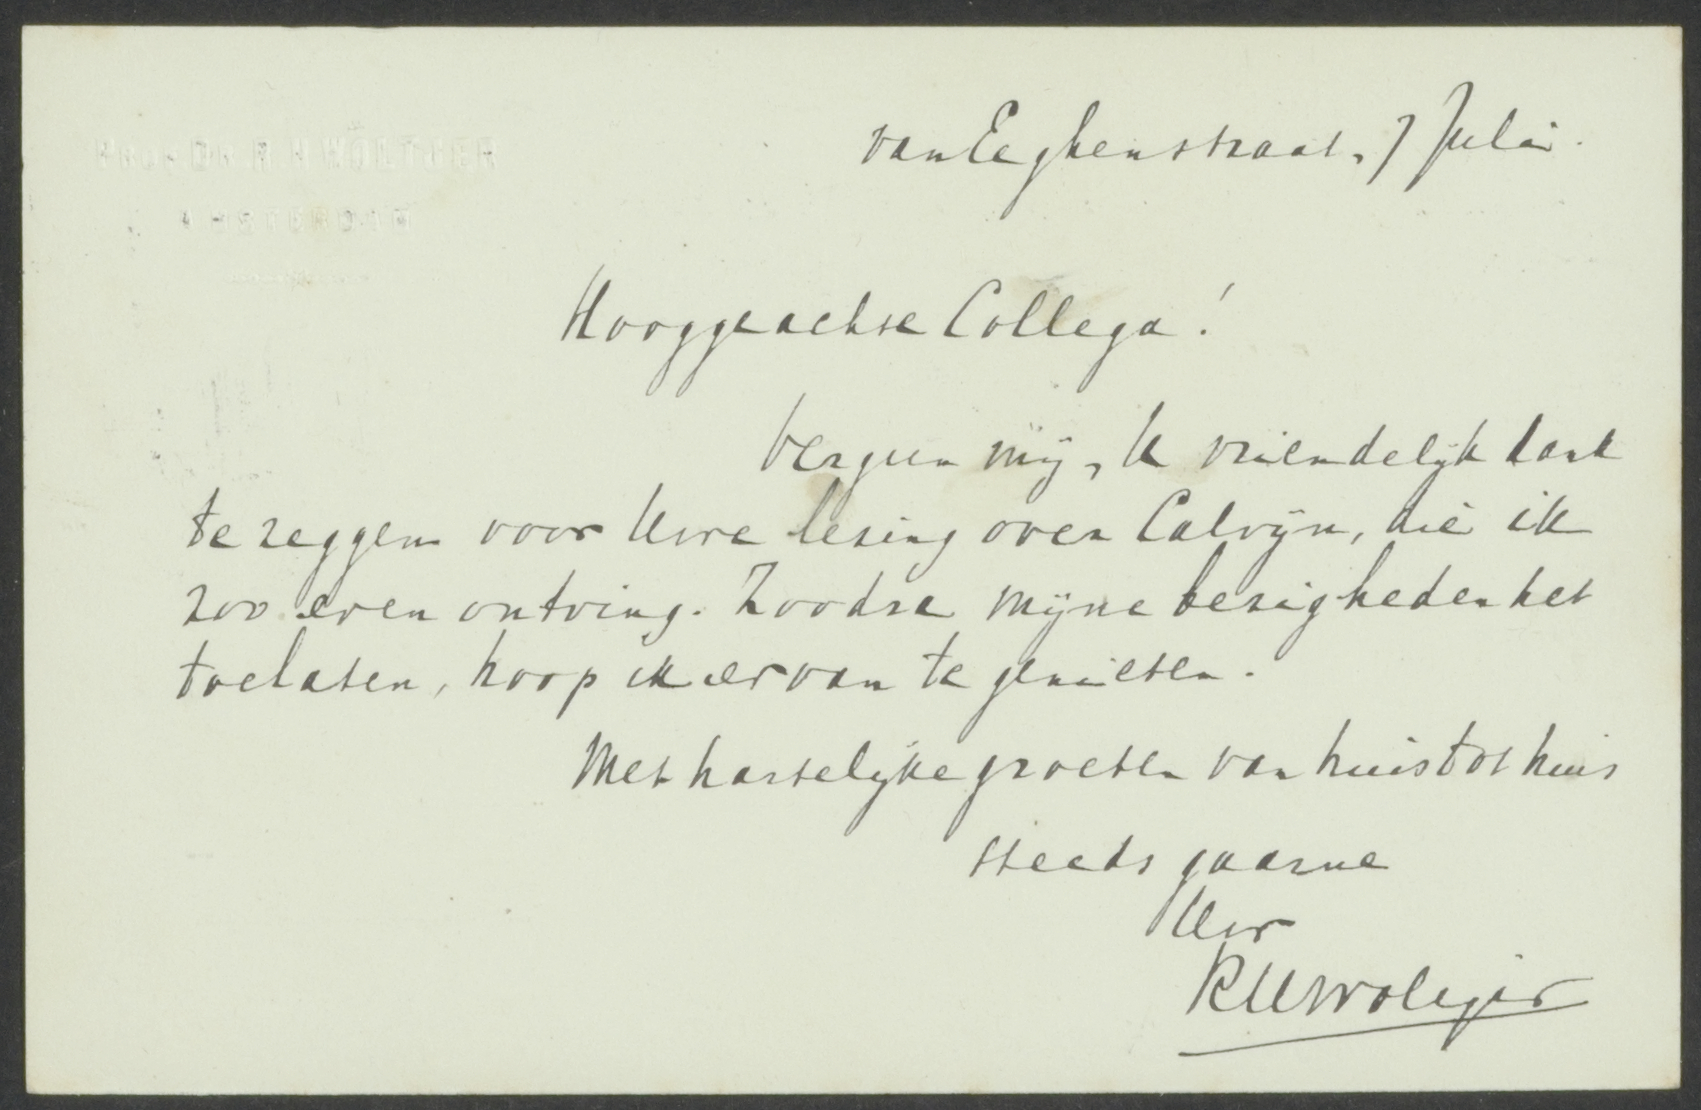 PROF. DR. R. H. WOLTJER
AMSTERDAM
van Eeghenstraat, 7 Juli.
Hooggeachte Collega!
Vergun mij, U vriendelijk dank
te zeggen voor Uwe lezing over Calvijn, die ik
zoo even ontving. Zoodra mijne bezigheden het
toelaten, hoop ik ervan te genieten.
Met hartelijke groeten van huis tot huis
steeds gaarne
Uw
RHWoltjer